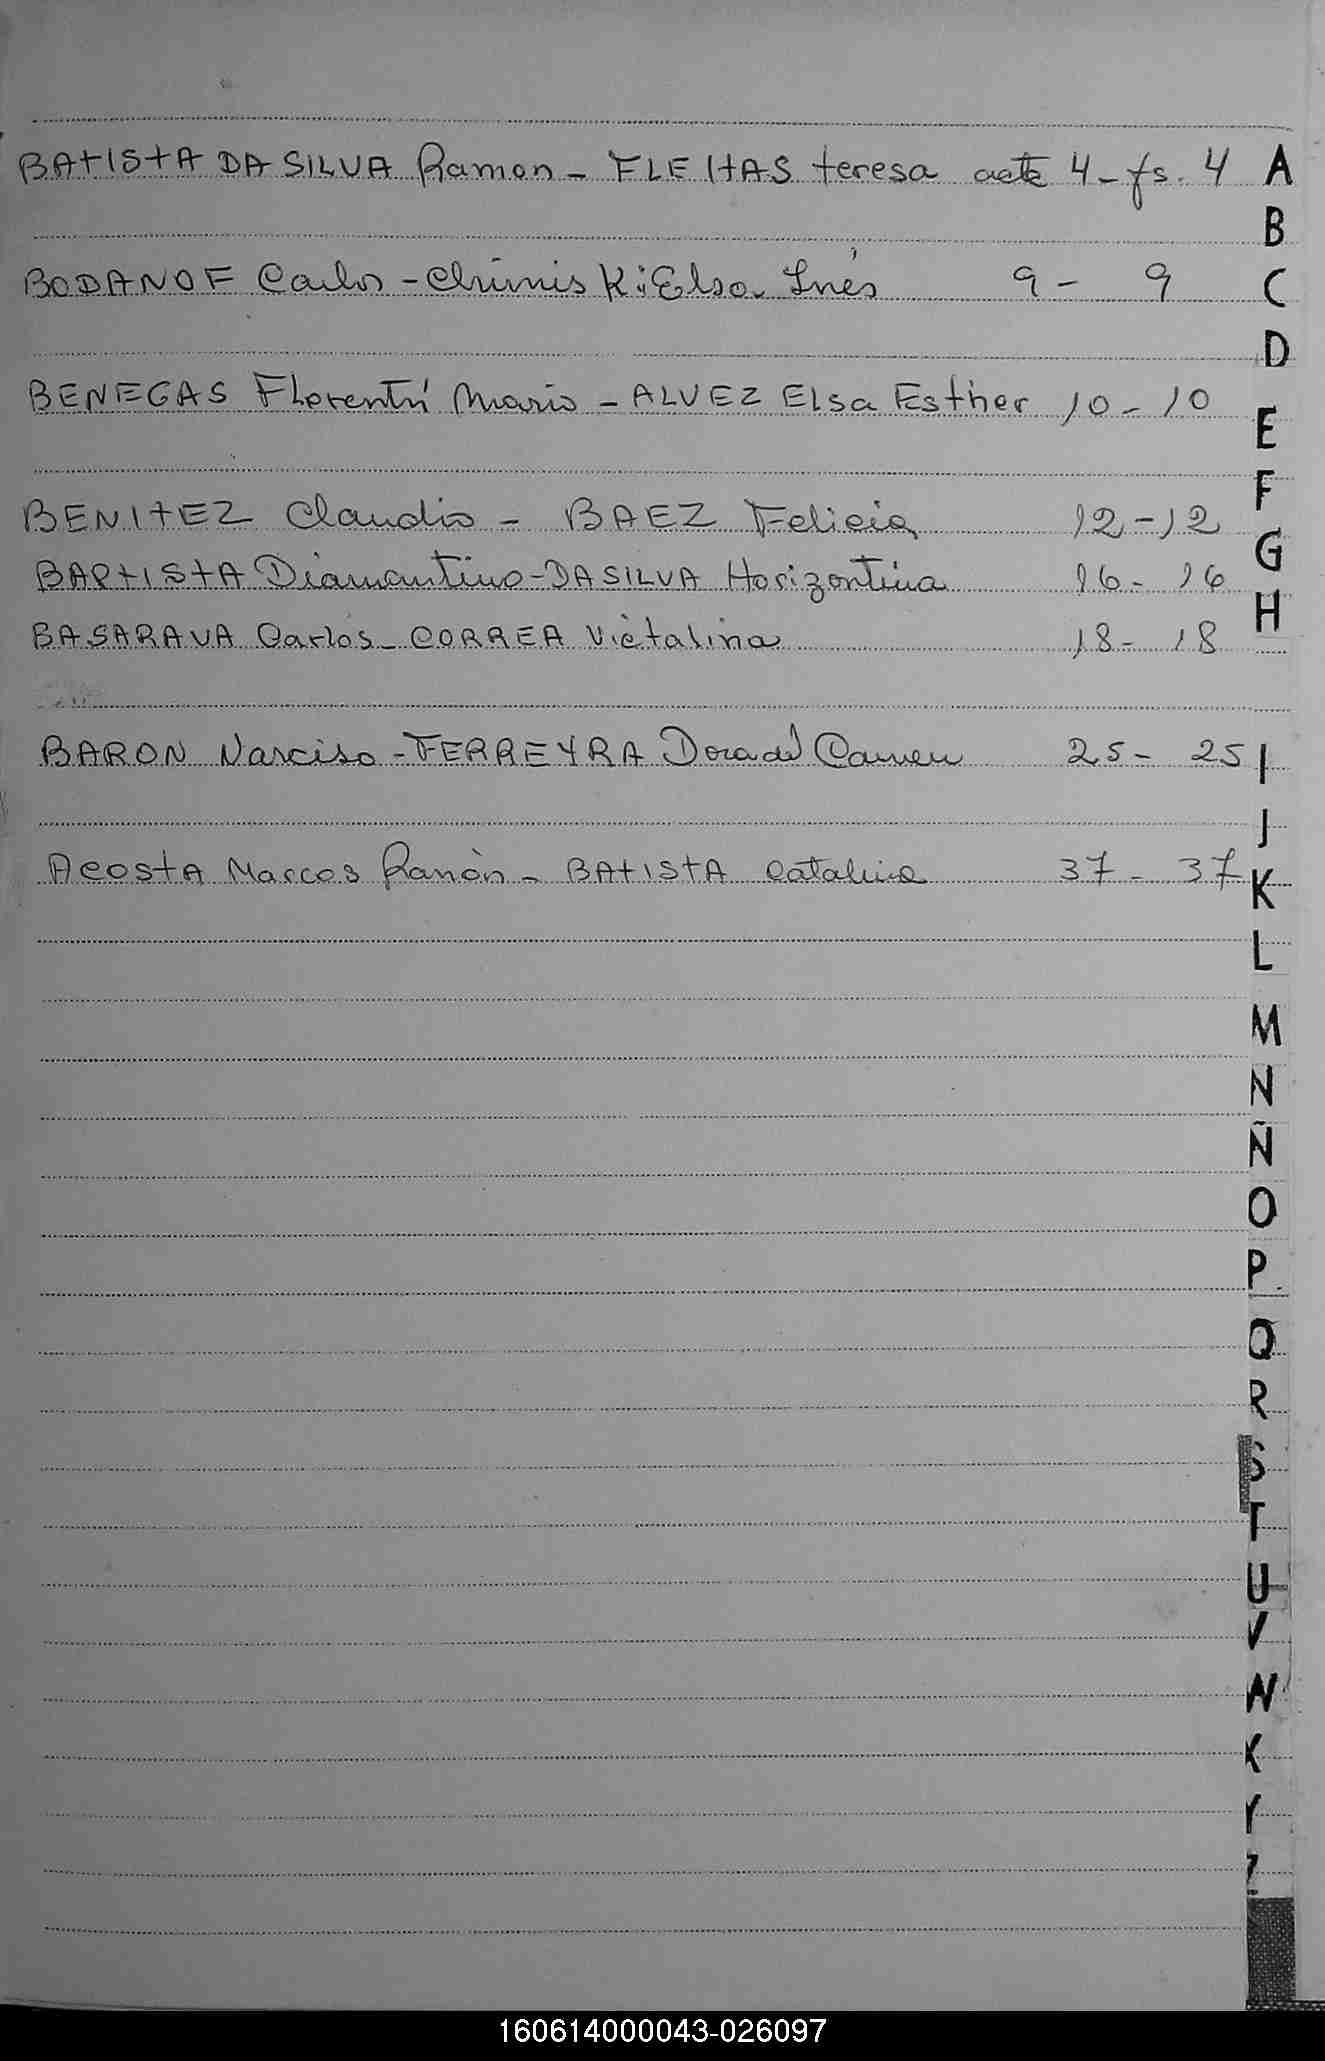 BATISTA DA SILVA Ramon - FLEITAS teresa acta 4 - fs. 4 A
B
BODANOF Carlos - Chimis Ki Elsa Inés 9 - 9 C
D
BENEGAS Florentí Mario - ALVEZ Elsa Esther 10 - 10
E
F
BENITEZ Claudio - BAEZ Felicia 12 - 12
G
BAPTISTA Diamantino - DA SILVA Horizontina 16 - 16
H
BASARAVA Carlos - CORREA Victalina 18 - 18
BARON Narciso - FERREYRA Dora del Carmen 25 - 25 I
J
Acosta Marcos Ramón - BATISTA Catalina 37 - 37
K
L
M
N
Ñ
O
P
Q
R
S
T
U
V
W
X
Y
Z
160614000043-026097